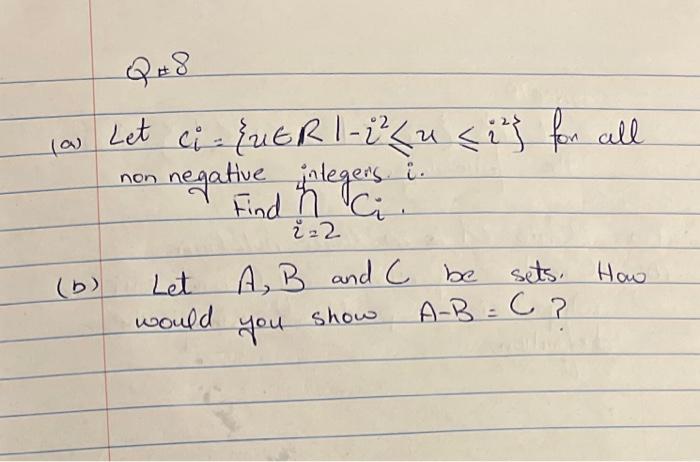 Q#8
(a) Let Ci = {u ∈ R | -i² ≤ u ≤ i²} for all
non negative integers i.
Find ⋂_{i=2}^{4} Ci.
(b) Let A, B and C be sets. How
would you show A-B = C?